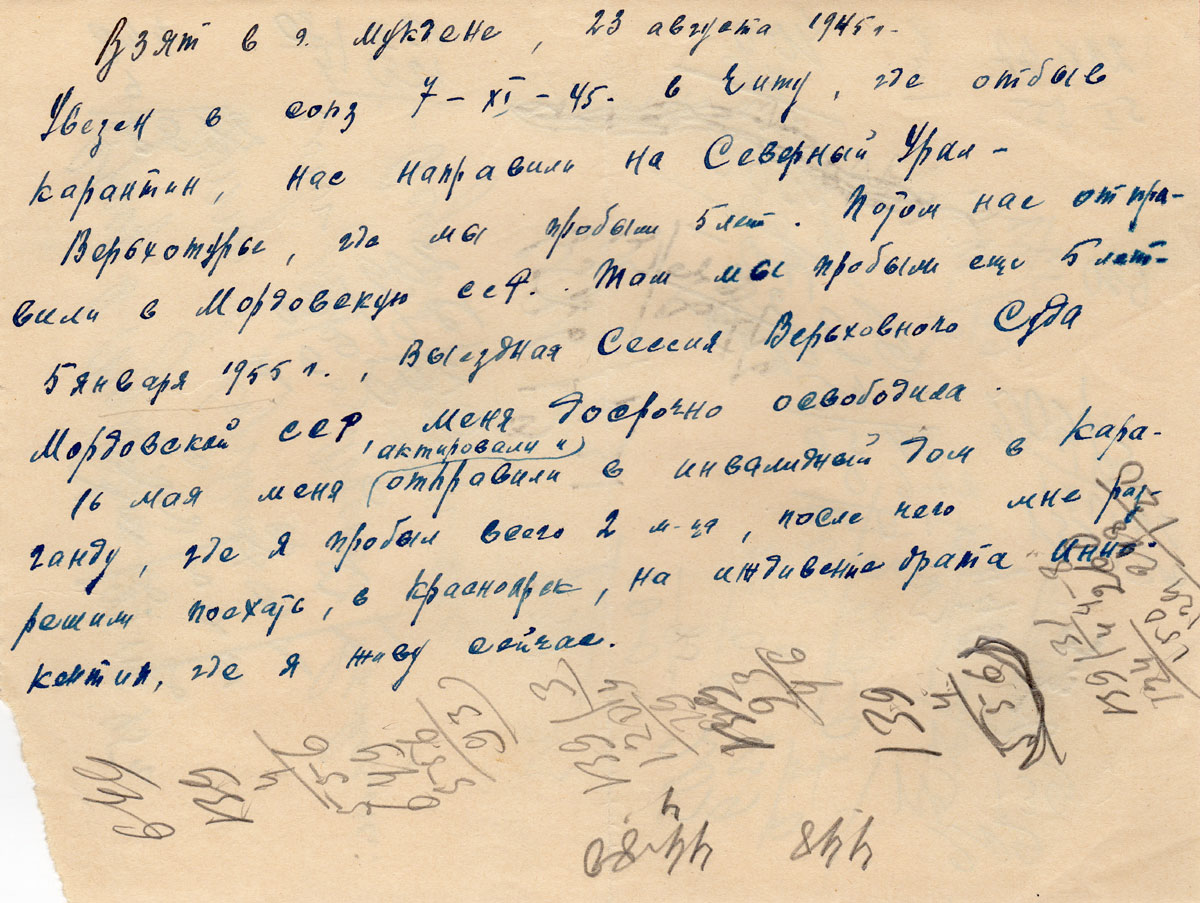 Взят в г. Мукдене, 23 августа 1945 г.
Увезен в союз 7 - XI - 45. в Читу, где отбыв
карантин, нас направили на Северный Урал -
Верьхотурье, где мы пробыли 5 лет. Потом нас отпра-
вили в Мордовскую ССР. Там мы пробыли еще 5 лет.
5 января 1955 г., Выездная Сессия Верьховного Суда
Мордовской ССР, меня досрочно освободила.
(актировали и)
16 мая меня отправили в инвалидный дом в Кара-
ганду, где я пробыл всего 2 м-ца, после чего мне раз-
решили поехать, в Красноярск, на иждивение брата Инно-
кентия, где я живу сейчас.
649
139
4
556
649
556
93
139 13
139
93
4
139
4
556
139 13
448